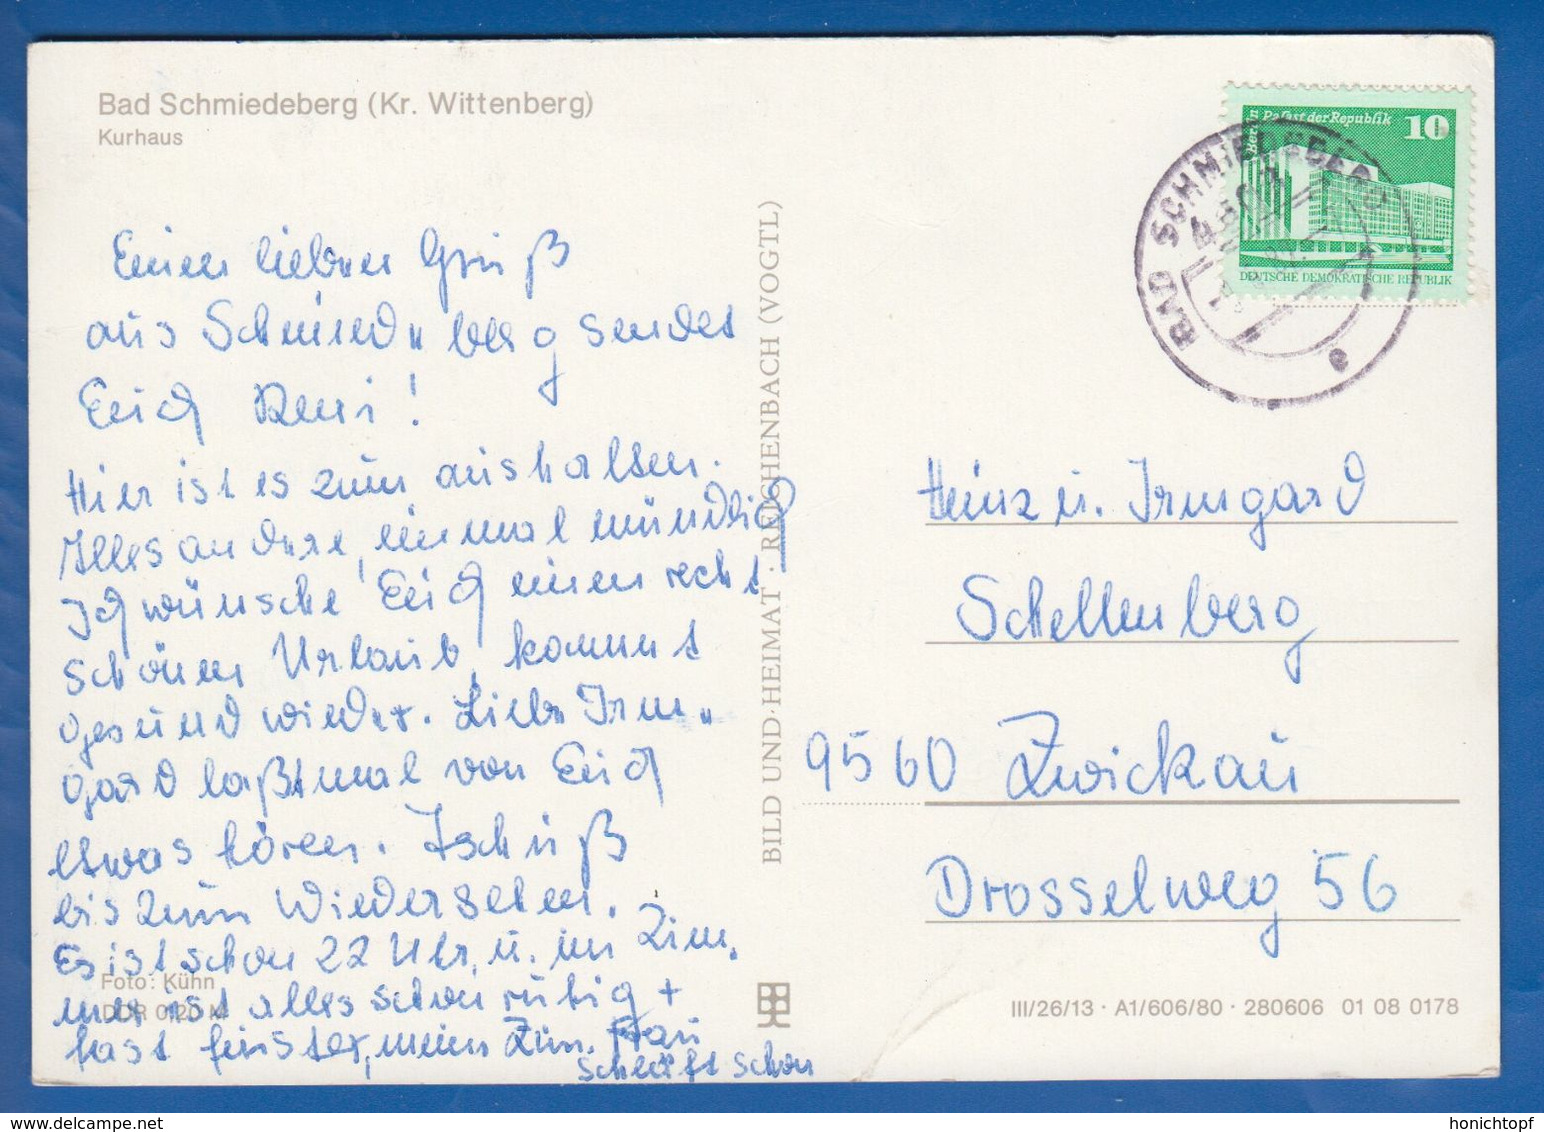 Bad Schmiedeberg (Kr. Wittenberg)
Kurhaus
Einen lieben Gruß
aus Schmiedeberg sendet
Euch Reni!
Hier ist es zum aushalten.
Alles andere, einmal mündlich
Ich wünsche Euch einen recht
schönen Urlaub, kommt
gesund wieder. Liebe Irm-
gard laßt mal von Euch
etwas hören. Tschüß
bis zum Wiedersehen.
Es ist schon 22 Uhr, u. im Zim.
mer ist alles schon ruhig +
fast finster, meine Zim. Frau
schläft schon
Foto: Kühn
DDR 0120 M
BILD UND HEIMAT · REICHENBACH (VOGTL)
Berlin Palast der Republik 10
DEUTSCHE DEMOKRATISCHE REPUBLIK
BAD SCHMIEDEBERG
Heinz u. Irmgard
Schellenberg
9560 Zwickau
Drosselweg 56
III/26/13 · A1/606/80 · 280606 01 08 0178
honichtopf